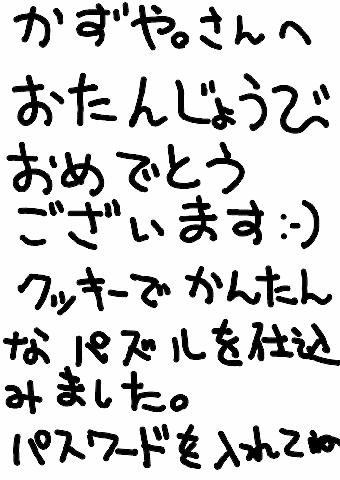 かずや。さんへ
おたんじょうび
おめでとう
ございます:-)
クッキーでかんたん
なパズルを仕込
みました。
パスワードを入れてね